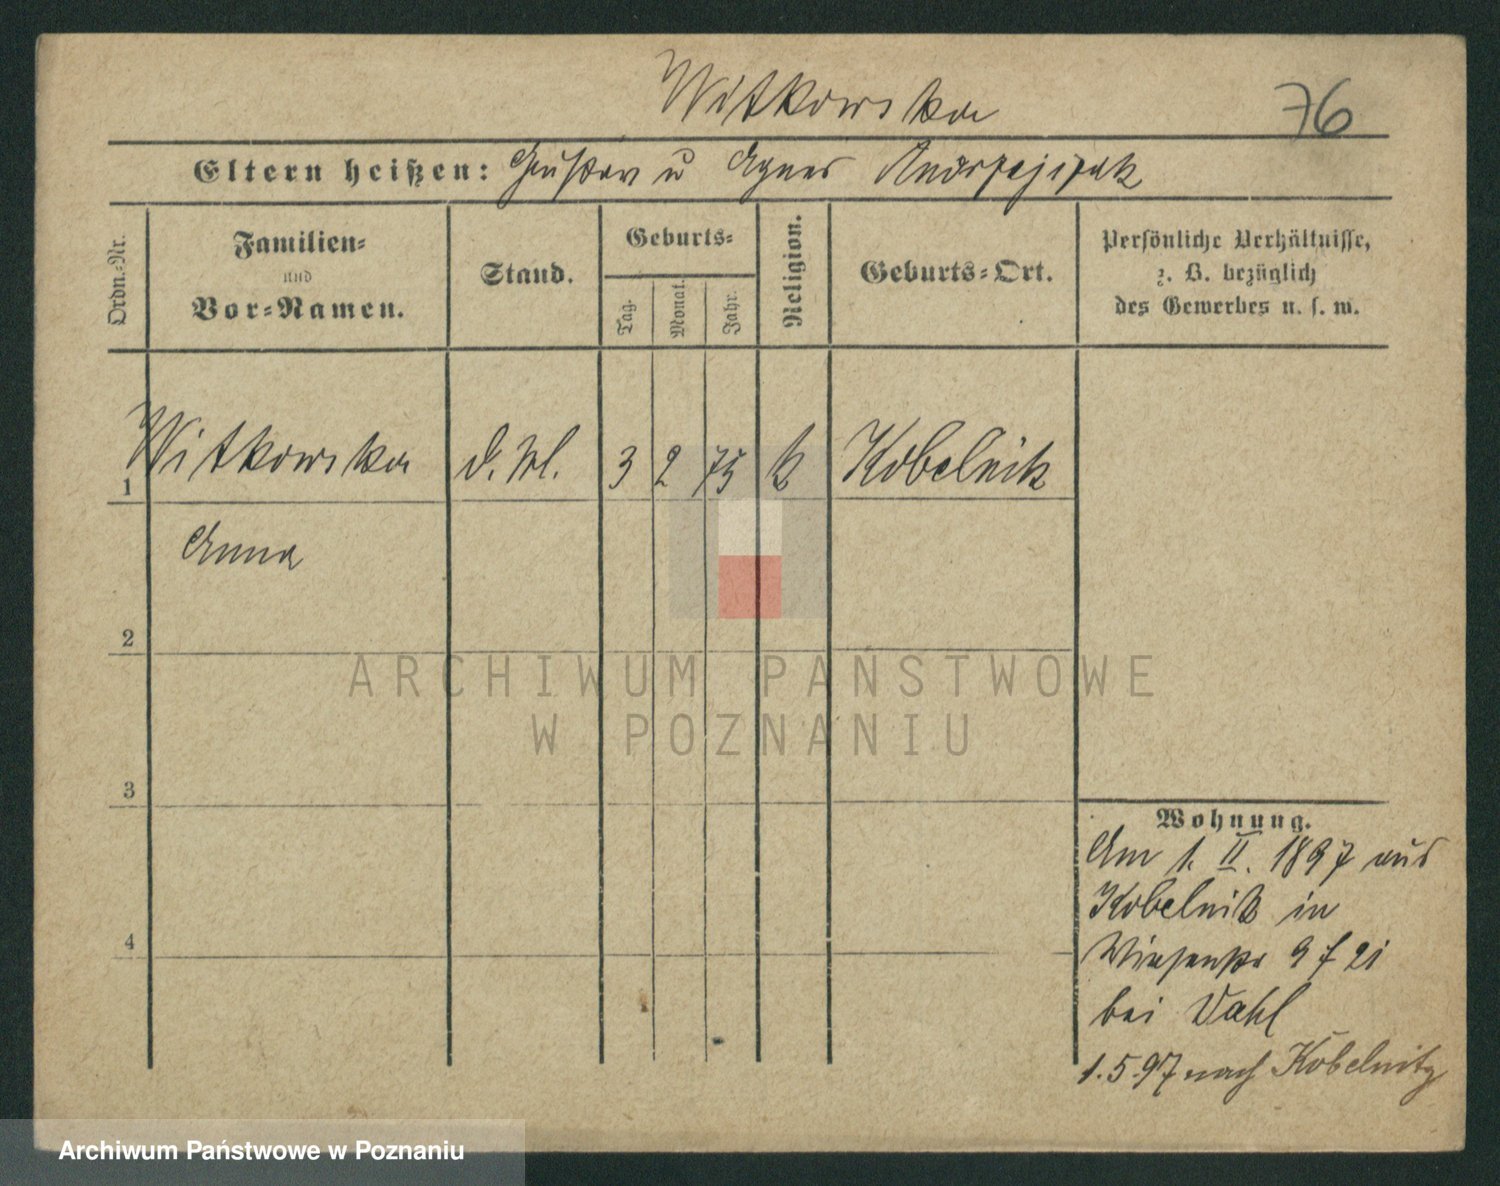 Witkowska
76
Eltern heißen: Gustav u Agnes Andrzejczak
Ordn.-Nr.
Familien-
und
Vor-Namen.
Stand.
Geburts-
Tag.
Monat.
Jahr.
Religion.
Geburts-Ort.
Persönliche Verhältnisse,
z. B. bezüglich
des Gewerbes u. s. w.
1 Witkowska d. M. 3 2 75 k Kobelnik
Anna
2
3
4
Wohnung.
Am 1. II. 1897 aus
Kobelnik in
Wiesenstr 9 f 21
bei Vahl
1.5.97 nach Kobelnitz
ARCHIWUM PAŃSTWOWE
W POZNANIU
Archiwum Państwowe w Poznaniu